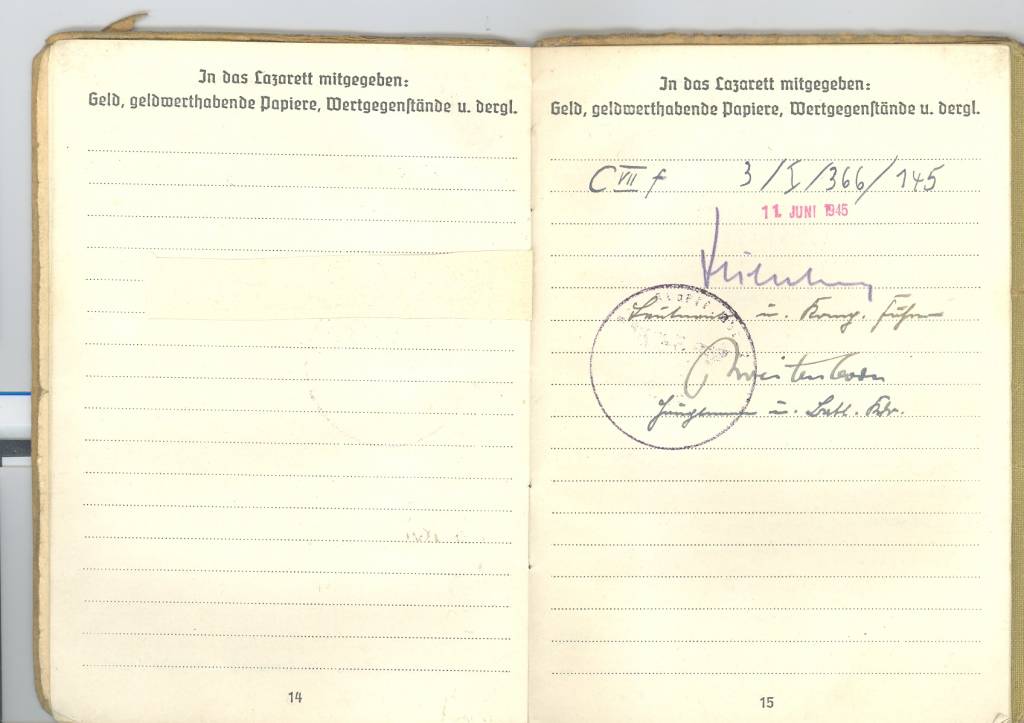 In das Lazarett mitgegeben:
Geld, geldwerthabende Papiere, Wertgegenstände u. dergl.
14
In das Lazarett mitgegeben:
Geld, geldwerthabende Papiere, Wertgegenstände u. dergl.
C VII f 3/I/366/145
11. JUNI 1945
Leutnant u. Komp. Führer
u. Batl. Kdr.
15